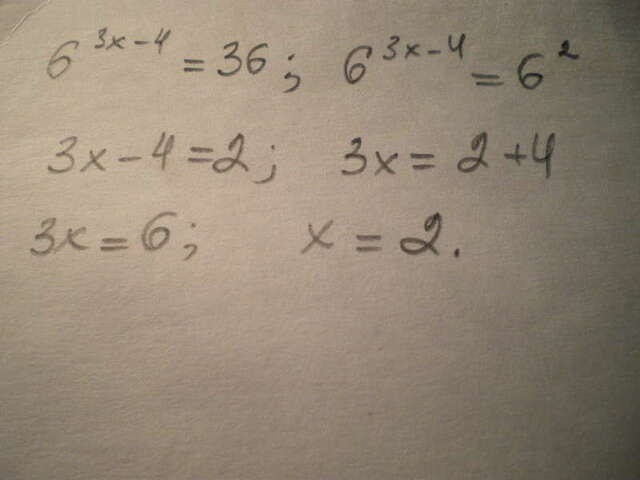 6^{3x-4} = 36; 6^{3x-4} = 6^2
3x - 4 = 2; 3x = 2 + 4
3x = 6; x = 2.